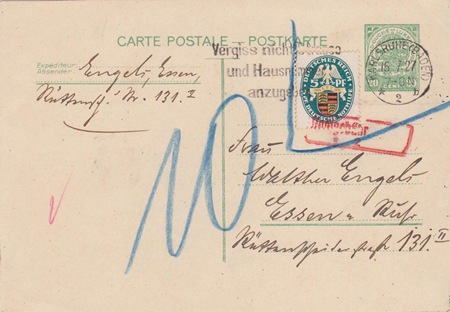 CARTE POSTALE – POSTKARTE
Expéditeur:
Absender:
Engels, Essen,
Nr. 131. II
Vergiss nicht Strasse
und
anzugeben
DEUTSCHES REICH
5+5 Pf
DEUTSCHE NOTHILFE
KARLSRUHE (BADEN)
15.7.27
2 b
10
Frau
Walther Engels
Essen a. Ruhr
Rüttenscheiderstraße 131 II